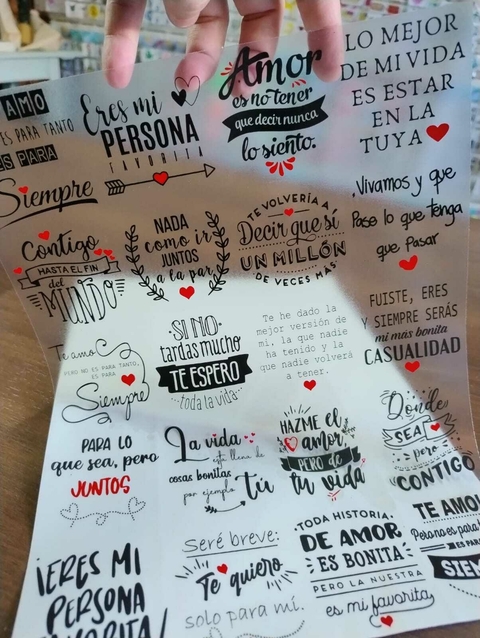 AMO
ES PARA TANTO
ES PARA
Siempre
Eres mi
PERSONA
FAVORITA
Amor
es no tener
que decir nunca
lo siento.
LO MEJOR
DE MI VIDA
ES ESTAR
EN LA
TUYA
Contigo
HASTA EL FIN
del
MUNDO
NADA
como ir
JUNTOS
a la par
TE VOLVERÍA A
Decir que sí
UN MILLÓN
DE VECES MÁS
Vivamos y que
Pase lo que tenga
que pasar
Te amo
PERO NO ES PARA TANTO,
ES PARA
Siempre
SI NO
tardas mucho
TE ESPERO
toda la vida
Te he dado la
mejor versión de
mi, la que nadie
ha tenido y la
que nadie volverá
a tener.
FUISTE, ERES
Y SIEMPRE SERÁS
mi más bonita
CASUALIDAD
PARA LO
que sea, pero
JUNTOS
La vida
está llena de
cosas bonitas
por ejemplo tú
HAZME el
amor,
PERO de
tu vida
Donde
SEA
pero
CONTIGO
¡ERES MI
PERSONA
FAVORITA!
Seré breve:
Te quiero
solo para mí.
TODA HISTORIA
DE AMOR
ES BONITA
PERO LA NUESTRA
es mi favorita
TE AMO
Pero no es para
ES PAR
SIEM